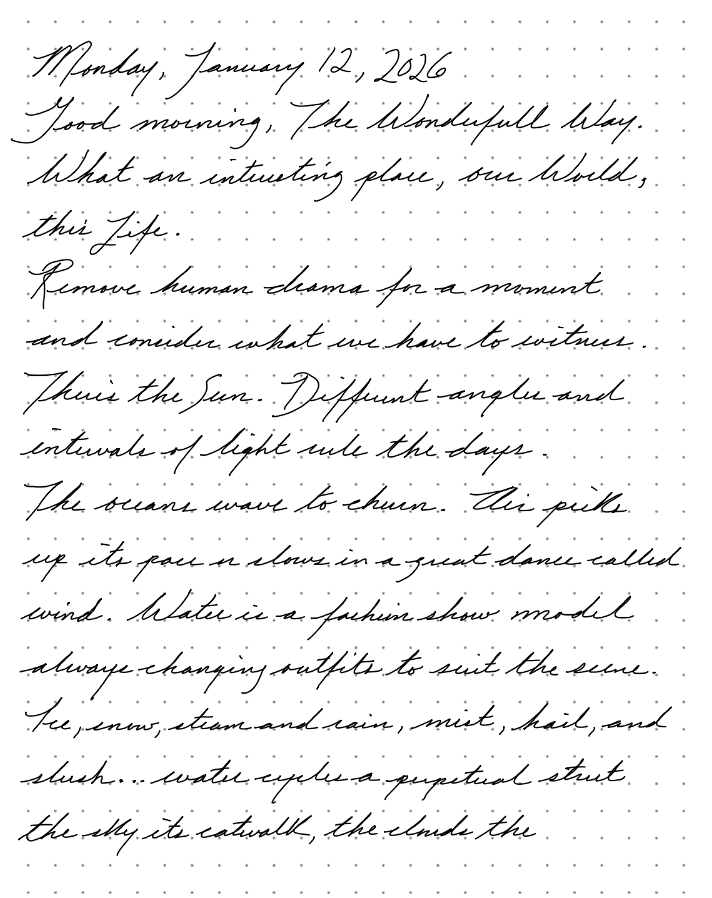 Monday, January 12, 2026
Good morning, The Wonderfull Way.
What an interesting place, our World,
this Life.
Remove human drama for a moment
and consider what we have to witness.
There's the Sun. Different angles and
intervals of light rule the days.
The oceans wave to churn. Air picks
up its pace or slows in a great dance called
wind. Water is a fashion show model
always changing outfits to suit the scene.
Ice, snow, steam and rain, mist, hail, and
slush... water cycles a perpetual strut
the sky its catwalk, the clouds the